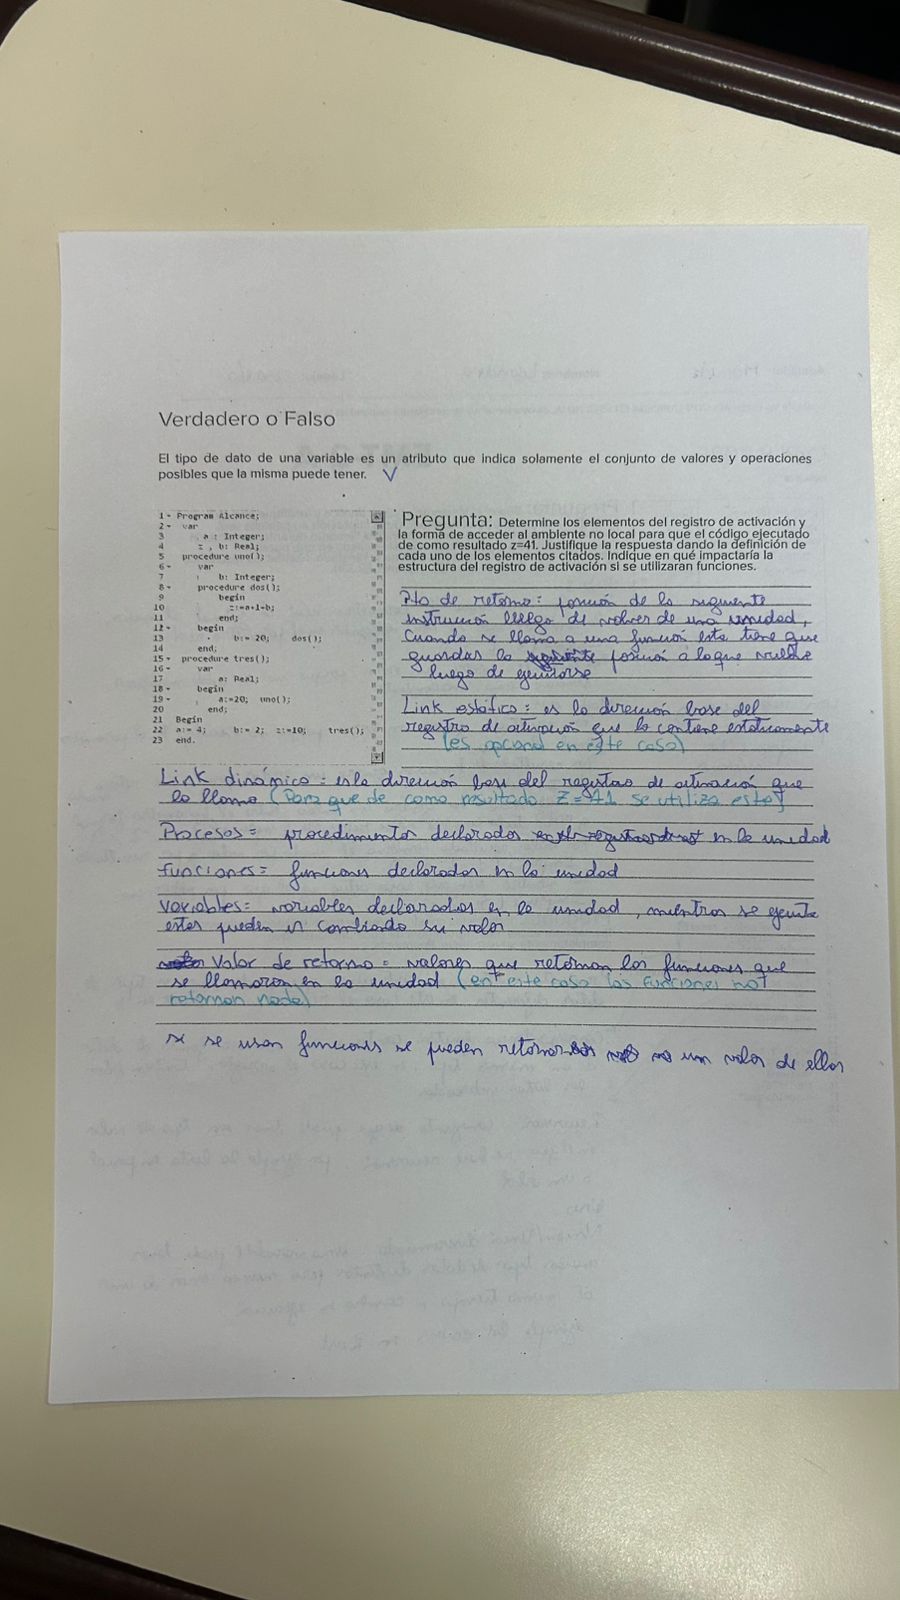 Verdadero o Falso
El tipo de dato de una variable es un atributo que indica solamente el conjunto de valores y operaciones
posibles que la misma puede tener. V
1 - Program Alcance;
2 - var
3 a : Integer;
4 z , b: Real;
5 procedure uno();
6 - var
7 b: Integer;
8 - procedure dos();
9 begin
10 z:=a+1+b;
11 end;
12 - begin
13 b:= 20; dos();
14 end;
15 - procedure tres();
16 - var
17 a: Real;
18 - begin
19 - a:=20; uno();
20 end;
21 Begin
22 a:= 4; b:= 2; z:=10; tres();
23 end.
Pregunta: Determine los elementos del registro de activación y
la forma de acceder al ambiente no local para que el código ejecutado
de como resultado z=41. Justifique la respuesta dando la definición de
cada uno de los elementos citados. Indique en qué impactaría la
estructura del registro de activación si se utilizaran funciones.
Pto de retorno: posición de la siguiente
instrucción luego de volver de una unidad,
Cuando se llama a una función esta tiene que
guardar la posición a la que vuelve
luego de ejecutarse
Link estático: es la dirección base del
registro de activación que lo contiene estáticamente
(es opcional en este caso)
Link dinámico: es la dirección base del registro de activación que
lo llamo (Para que de como resultado Z=41 se utiliza este)
Procesos= procedimientos declarados en la unidad
Funciones= funciones declaradas en la unidad
Variables= variables declaradas en la unidad, mientras se ejecuta
estas pueden ir cambiando su valor
Valor de retorno= valores que retornan las funciones que
se llamaron en la unidad (en este caso las funciones no
retornan nada)
si se usan funciones se pueden un valor de ellas